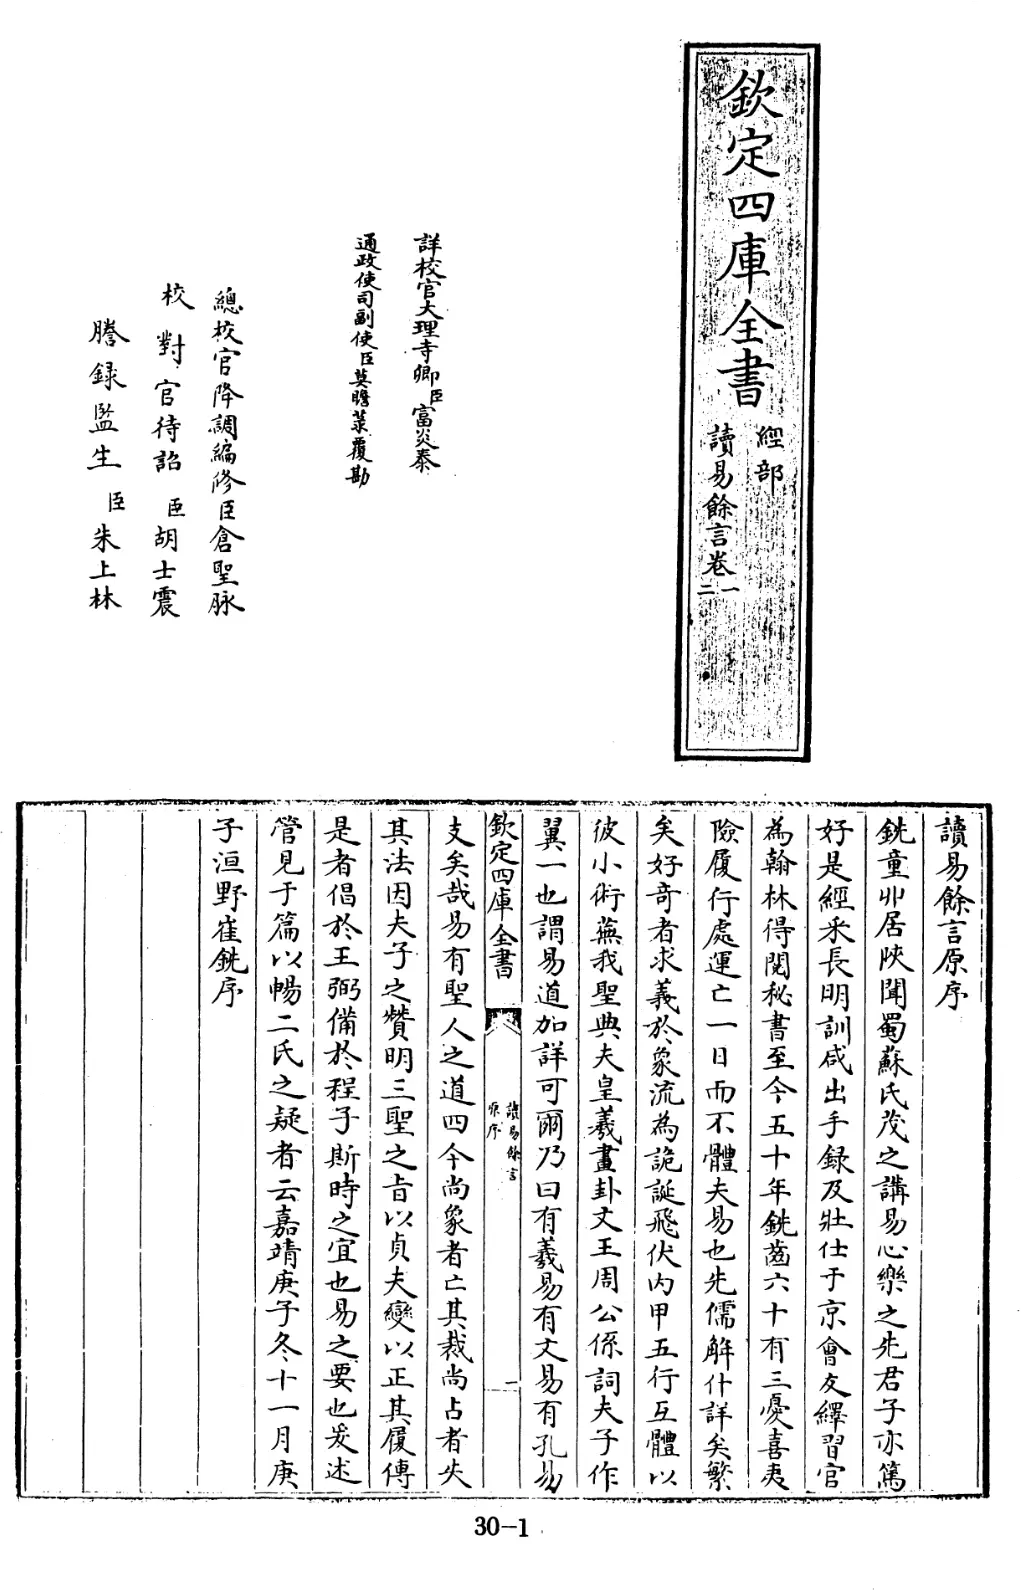 欽定四庫全書
經部
讀易餘言卷一
二
詳校官大理寺卿臣富炎泰
通政使司副使臣莫瞻菉覆勘
總校官降調編修臣倉聖脉
校對官待詔臣胡士震
謄錄監生臣朱上林
讀易餘言原序
銑童丱居陜聞蜀蘇氏茂之講易心樂之先君子亦篤
好是經釆長明訓咸出手錄及壯仕于京會友繹習官
為翰林得閱秘書至今五十年銑齒六十有三憂喜夷
險履行處運亡一日而不體夫易也先儒解什詳矣繁
矣好奇者求義於象流為詭誕飛伏内甲五行互體以
彼小術蕪我聖典夫皇羲畫卦文王周公係詞夫子作
翼一也謂易道加詳可爾乃曰有羲易有文易有孔易
欽定四庫全書
讀易餘言
原序
一
支矣哉易有聖人之道四今尚象者亡其裁尚占者失
其法因夫子之贊明三聖之㫖以貞夫變以正其履傳
是者倡於王弼備於程子斯時之宜也易之要也爰述
管見于篇以暢二氏之疑者云嘉靖庚子冬十一月庚
子洹野崔銑序
30-1